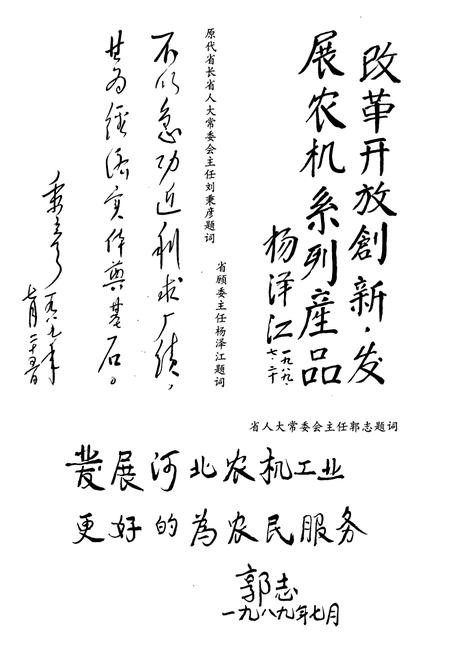 改革开放創新·发
展农机系列產品
杨泽江
一九八九.
七.二十
省顾委主任杨泽江题词
原代省长省人大常委会主任刘秉彦题词
不以急功近利求绩，
甘为经济实体奠基石。
一九八九年
七月二十五日
省人大常委会主任郭志题词
发展河北农机工业
更好的为农民服务
郭志
一九八九年七月